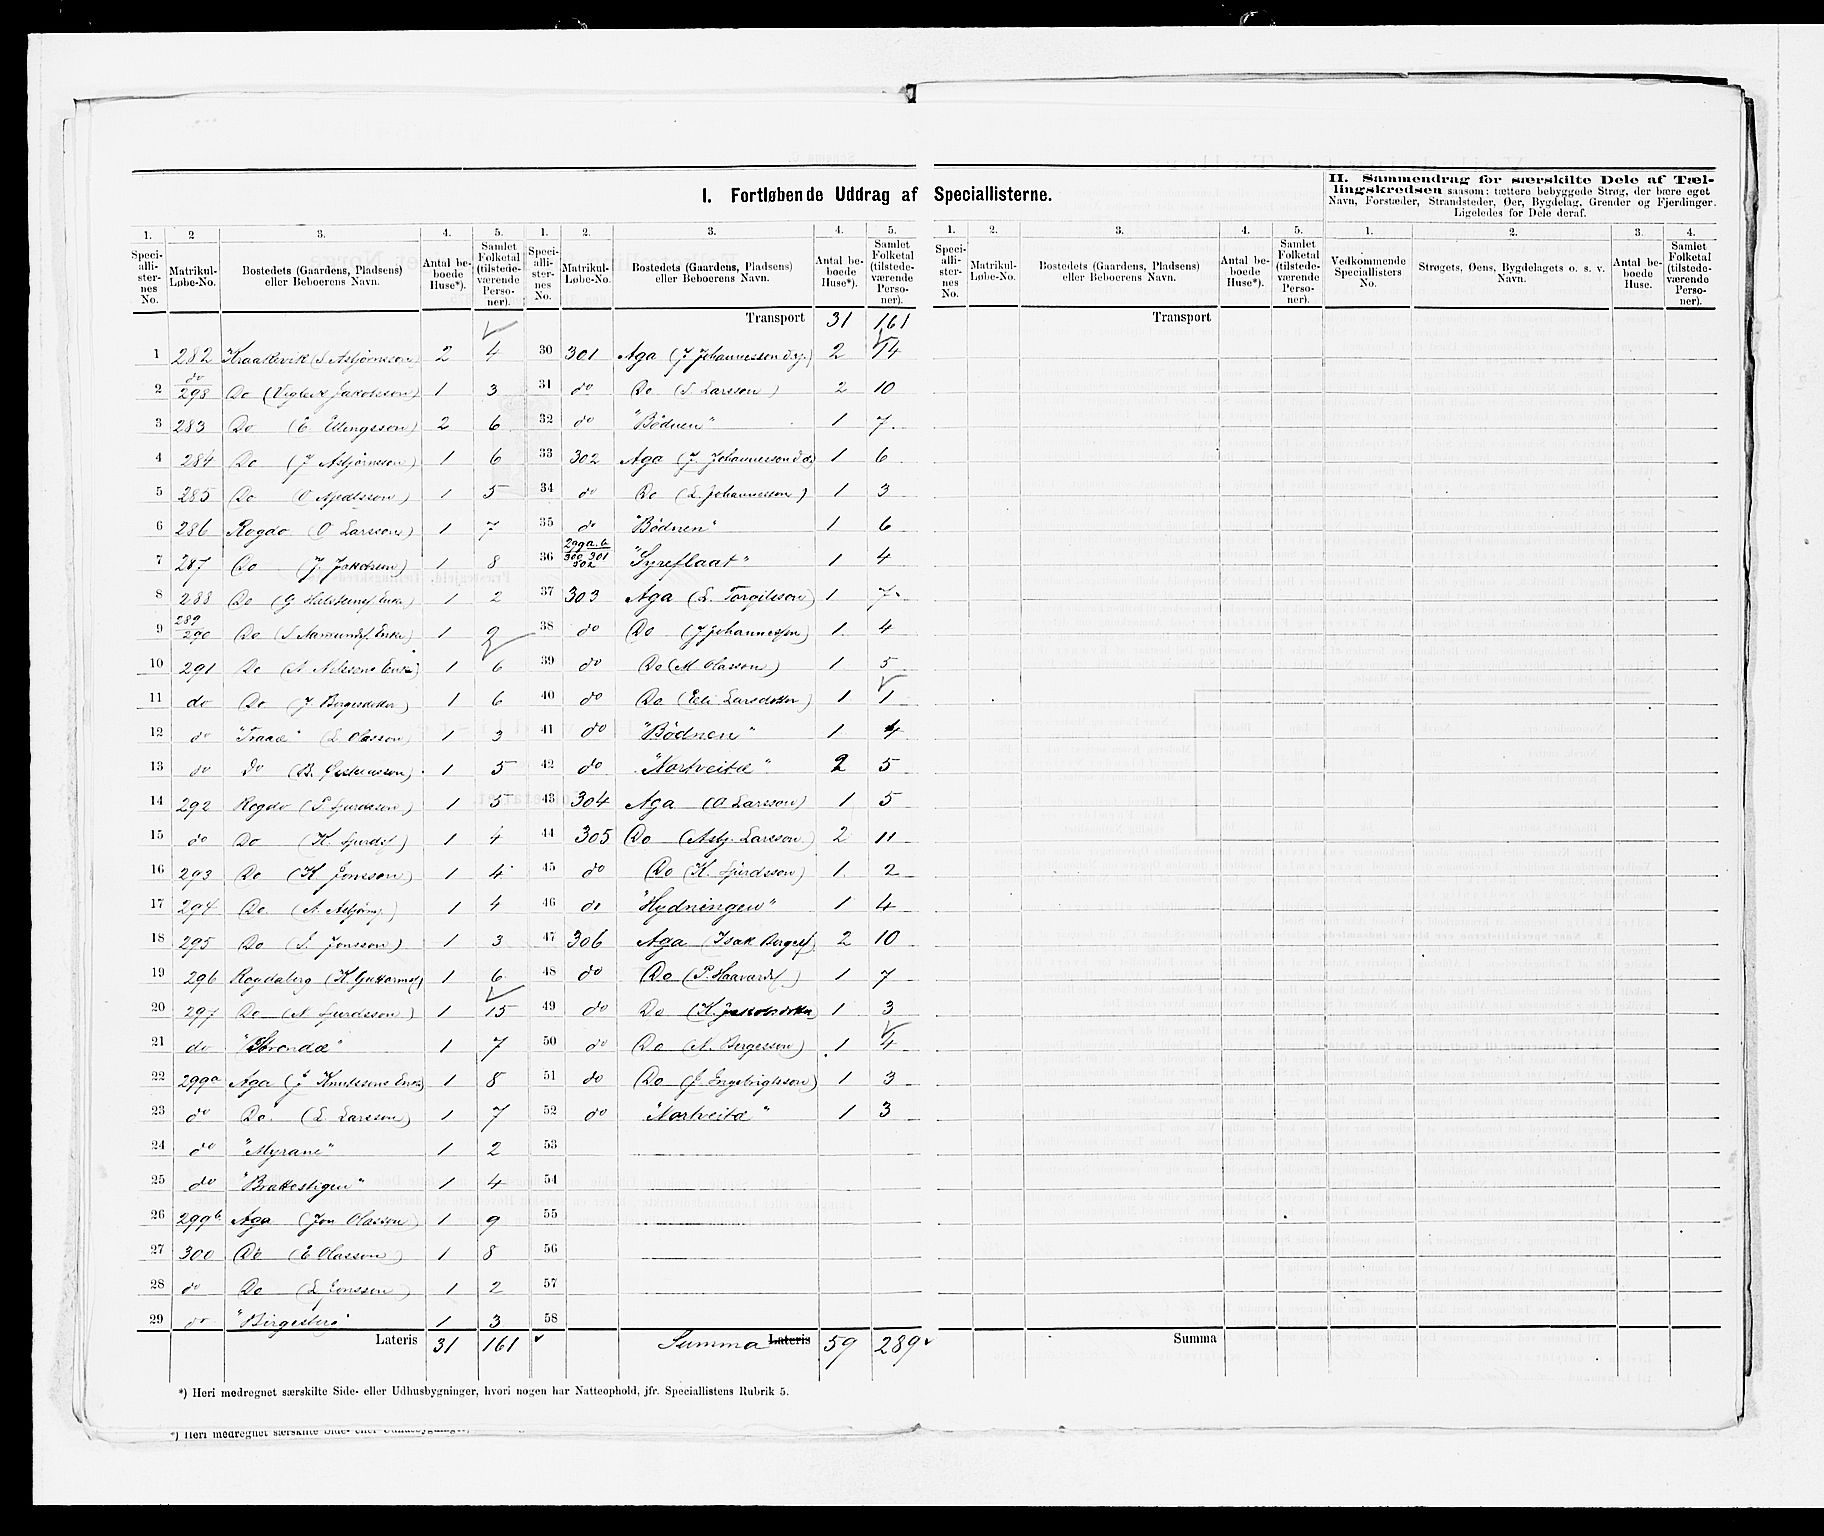 I. Fortløbende Uddrag af Speciallisterne.
II. Sammendrag for særskilte Dele af Tællingskredsen saasom: tættere bebyggede Strøg, der bære eget
Navn, Forstæder, Strandsteder, Øer, Bygdelag, Grender og Fjerdinger.
Ligeledes for Dele deraf.
1. 2 3. 4. 5. 1. 2. 3. 4. 5. 1. 2. 3. 4. 5. 1. 2. 3. 4.
Speciallisternes No. Matrikul-Løbe-No. Bostedets (Gaardens, Pladsens) eller Beboerens Navn. Antal beboede Huse*). Samlet Folketal (tilstedeværende Personer).
Speciallisternes No. Matrikul-Løbe-No. Bostedets (Gaardens, Pladsens) eller Beboerens Navn. Antal beboede Huse*). Samlet Folketal (tilstedeværende Personer).
Speciallisternes No. Matrikul-Løbe-No. Bostedets (Gaardens, Pladsens) eller Beboerens Navn. Antal beboede Huse*). Samlet Folketal (tilstedeværende Personer).
Vedkommende Speciallisters No. Strøgets, Øens, Bygdelagets o. s. v. Navn. Antal beboede Huse. Samlet Folketal (tilstedeværende Personer).
1 282 Kraakevik (S Asbjørnsson) 2 4
2 do/298 Do (Vigleik Jakobsson) 1 3
3 283 Do (E. Ellingsson) 2 6
4 284 Do (J Asbjørnsson) 1 6
5 285 Do (O Apeldsson) 1 5
6 286 Rogdo (O Larsson) 1 7
7 287 Do (J. Jakobson) 1 8
8 288 Do (G Halstens Enke) 1 2
9 289/290 Do (S Aamunds. Enke) 1 2
10 291 Do (A Nilssons Enke) 1 6
11 do Do (J Bergesdotter) 1 6
12 do "Traaæ" (L Olasson) 1 3
13 do Do (B. ) 1 5
14 292 Rogdo (P. Sjurdsson) 1 5
15 do Do (K. Sjurds) 1 4
16 293 Do (K Jonsson) 1 4
17 294 Do. (A. Asbjørns.) 1 4
18 295 Do (S. Jonsson) 1 3
19 296 Rogdaberg (K Guttorms) 1 6
20 297 Do (N Sjurdsson) 1 15
21 do "Strondæ" 1 7
22 299a Aga (J Knutssons Enke) 1 8
23 do Do. (L Larsson) 1 7
24 do "Myrane" 1 2
25 do "Brattestigen" 1 4
26 299b. Aga (Jon Olasson) 1 9
27 300 Do (E Olasson) 1 8
28 do Do (L Jonsson) 1 2
29 do "Birgesberg" 1 3
Lateris 31 161
Transport 31 161
30 301 Aga (J Johannesson d.y.) 2 14
31 do Do (S. Larsson) 2 10
32 do "Bödnen" 1 7
33 302 Aga (J. Johannesson d.æ) 1 6
34 do Do (L. Johannesson) 1 3
35 do "Bödnen" 1 6
36 299a.b 300 301 302 "Syreflaat" 1 4
37 303 Aga (L. Torgilsson) 1 7
38 do Do (J Johannessen) 1 4
39 do Do (M Olasson) 1 5
40 do Do (Eli Larsdotter) 1 1
41 do "Bödnen" 1 4
42 do "Nortveitæ" 2 5
43 304 Aga (O Larsson) 1 5
44 305 Do (Asbj. Larsson) 2 11
45 do Do (K. Sjurdsson) 1 2
46 do "Hydningen" 1 4
47 306 Aga (Isak Berges) 2 10
48 do Do (P. Haavards) 1 7
49 do Do (K. Jakobsdotter) 1 3
50 do Do (A. Bergesson) 1 4
51 do Do (J Engebrigtsson) 1 3
52 do "Nortveitæ" 1 3
53
54
55
56
57
58
Summa Lateris 59 289
Transport
Summa
*) Heri medregnet særskilte Side- eller Udhusbygninger, hvori nogen har Natteophold, jfr. Speciallistens Rubrik 5.
*) Heri medregnet særskilte Side- eller Udhusbygninger,